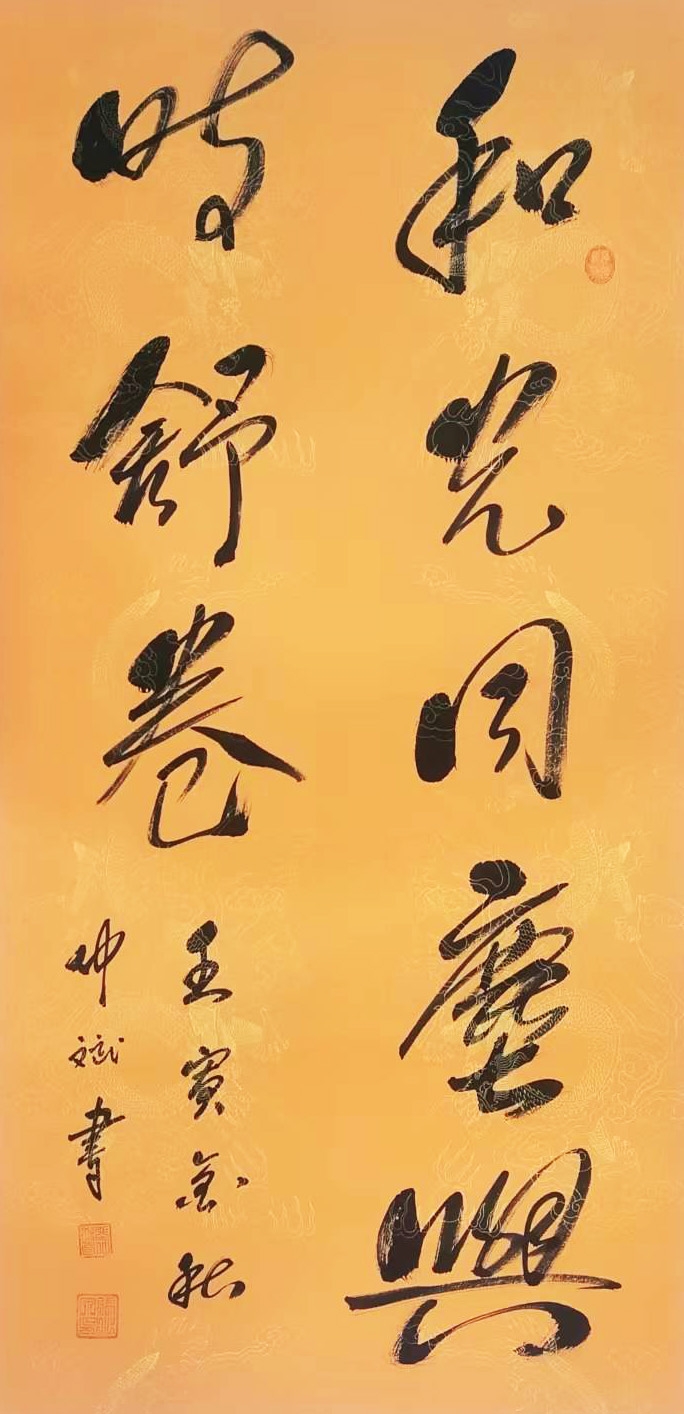 和光同塵與
時舒卷
壬寅金秋
仲斌書